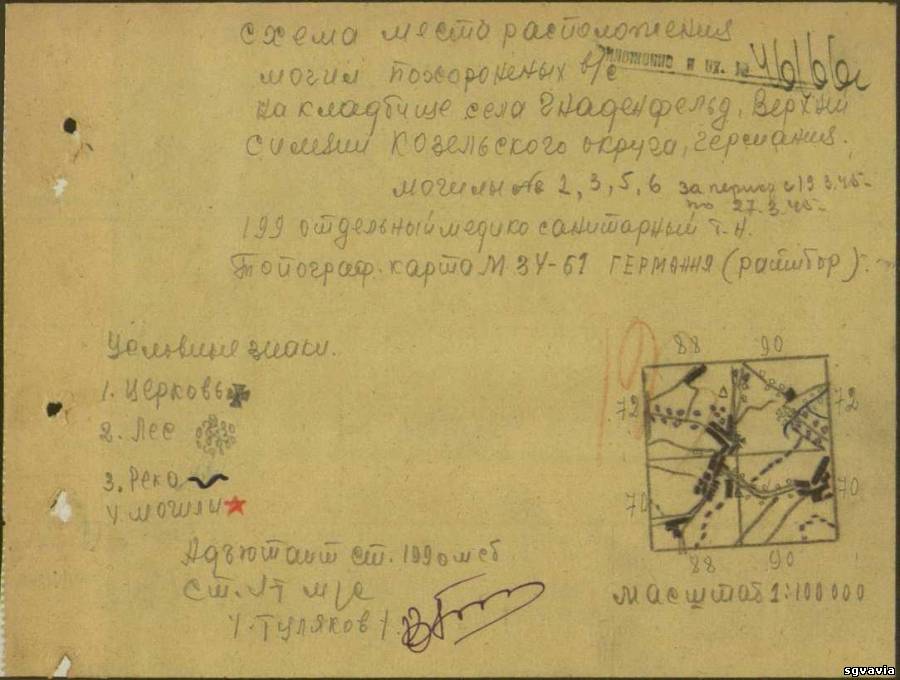 схема места расположения
могил похороненых в/с
на кладбище села Гнаденфельд, Верхний
Силезии Козельского округа, Германия.
могилы № 2, 3, 5, 6 за период с 19.3.45-
по 27.3.45-
199 отдельный медико санитарный
Топограф. карта М 34-61 ГЕРМАНИЯ (ратибор).
Условные знаки.
1. Церковь
2. Лес
3. Река
4 могилы
88 90
72 72
70 70
88 90
масштаб 1:100 000
Адъютант ст. 199 омсб
ст. лт м/с
/Туляков/
sgvavia